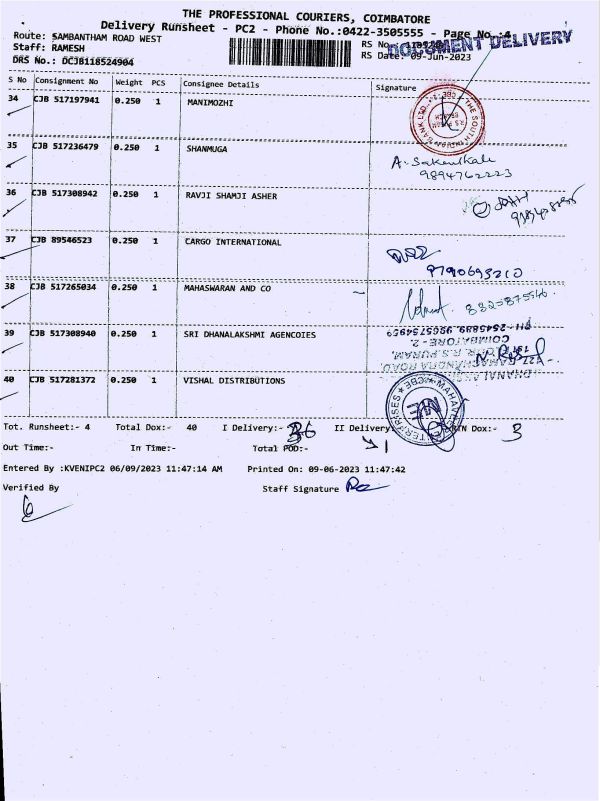 THE PROFESSIONAL COURIERS, COIMBATORE
Delivery Runsheet - PC2 - Phone No.:0422-3505555 - Page No.:4
DOCUMENT DELIVERY
Route: SAMBANTHAM ROAD WEST
RS No.:
Staff: RAMESH
RS Date: 09-Jun-2023
DRS No.: DCJB118524904
S No Consignment No Weight PCS Consignee Details Signature
34 CJB 517197941 0.250 1 MANIMOZHI
THE SOUTH INDIAN BANK LTD
35 CJB 517236479 0.250 1 SHANMUGA
9894762223
36 CJB 517308942 0.250 1 RAVJI SHAMJI ASHER
37 CJB 89546523 0.250 1 CARGO INTERNATIONAL
9790693210
38 CJB 517265034 0.250 1 MAHASWARAN AND CO
39 CJB 517308940 0.250 1 SRI DHANALAKSHMI AGENCOIES
COIMBATORE - 2.
R.S.PURAM,
40 CJB 517281372 0.250 1 VISHAL DISTRIBUTIONS
Tot. Runsheet:- 4 Total Dox:- 40 I Delivery:- 36 II Delivery 1 RTN Dox:- 3
Out Time:- In Time:- Total POD:-
Entered By :KVENIPC2 06/09/2023 11:47:14 AM Printed On: 09-06-2023 11:47:42
Verified By Staff Signature